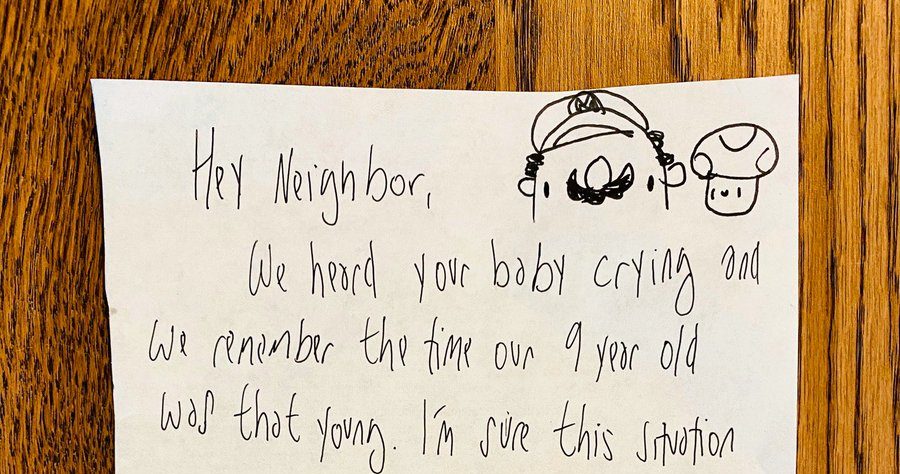 Hey Neighbor,
We heard your baby crying and
we remember the time our 9 year old
was that young. I'm sure this situation